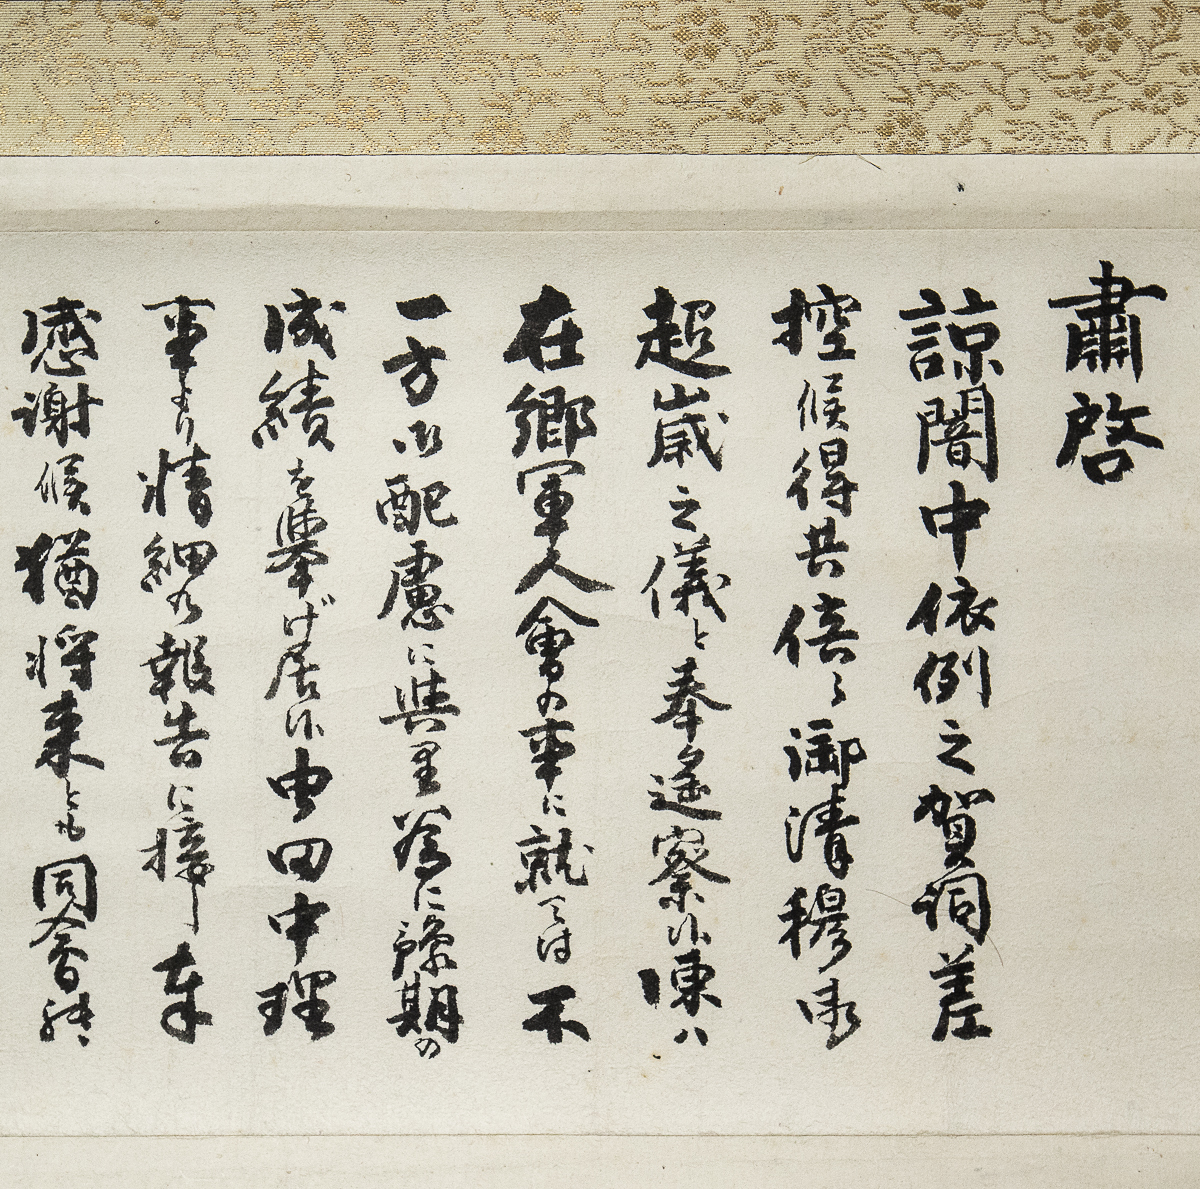 肅啓
諒闇中依例之賀詞差
控候得共倍々御清穆御
超歳之儀と奉遙察候陳ハ
在郷軍人會の事に就ては不
一方御配慮に與里為に豫期の
成績を擧げ居候由田中理
事より精細の報告に接し奉
感謝候猶将来とも同會